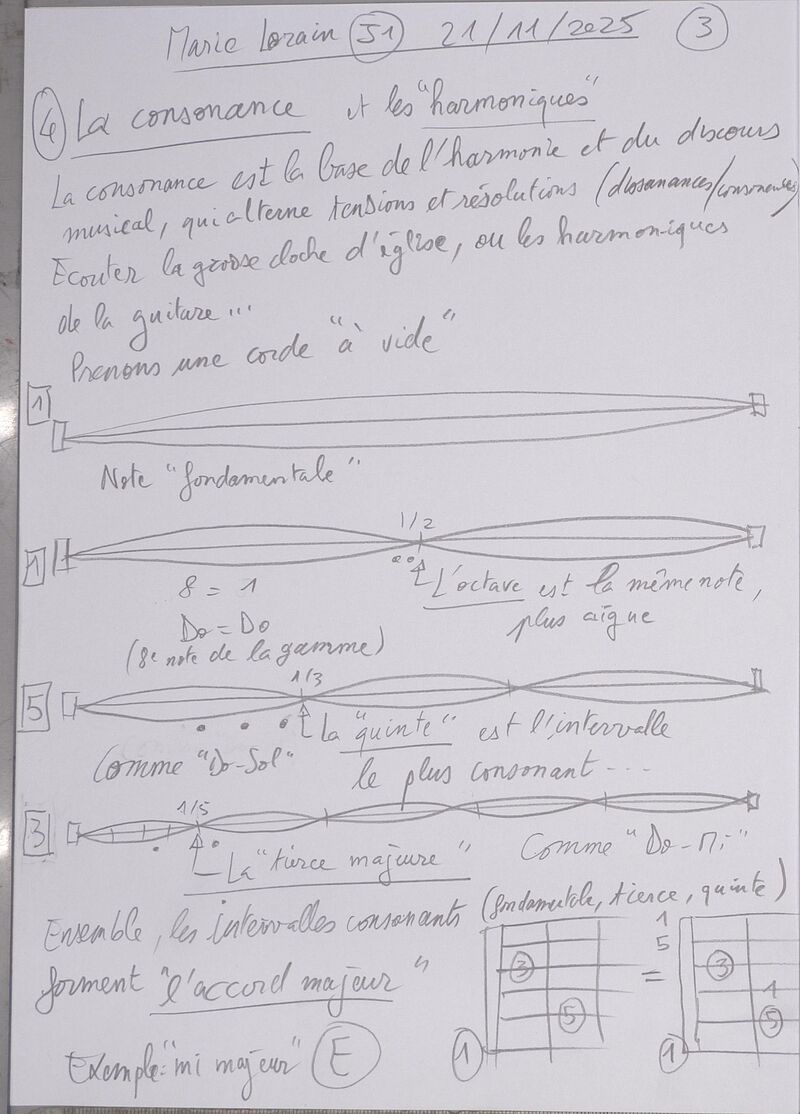 Marie Lorain J1 21/11/2025 3
4 La consonance et les "harmoniques"
La consonance est la base de l'harmonie et du discours
musical, qui alterne tensions et résolutions (dissonances/consonances)
Ecouter la grosse cloche d'église, ou les harmoniques
de la guitare...
Prenons une corde "à vide"
1
Note "fondamentale"
1/2
1
8 = 1
L'octave est la même note,
plus aïgue
Do = Do
(8e note de la gamme)
1/3
5
La "quinte" est l'intervalle
Comme "Do-Sol"
le plus consonant ...
1/5
3
La "tierce majeure"
Comme "Do-Mi"
Ensemble, les intervalles consonants (fondamentale, tierce, quinte)
forment "l'accord majeur"
Exemple: "mi majeur" E
3 5 1
=
1 5 3 1 5 1